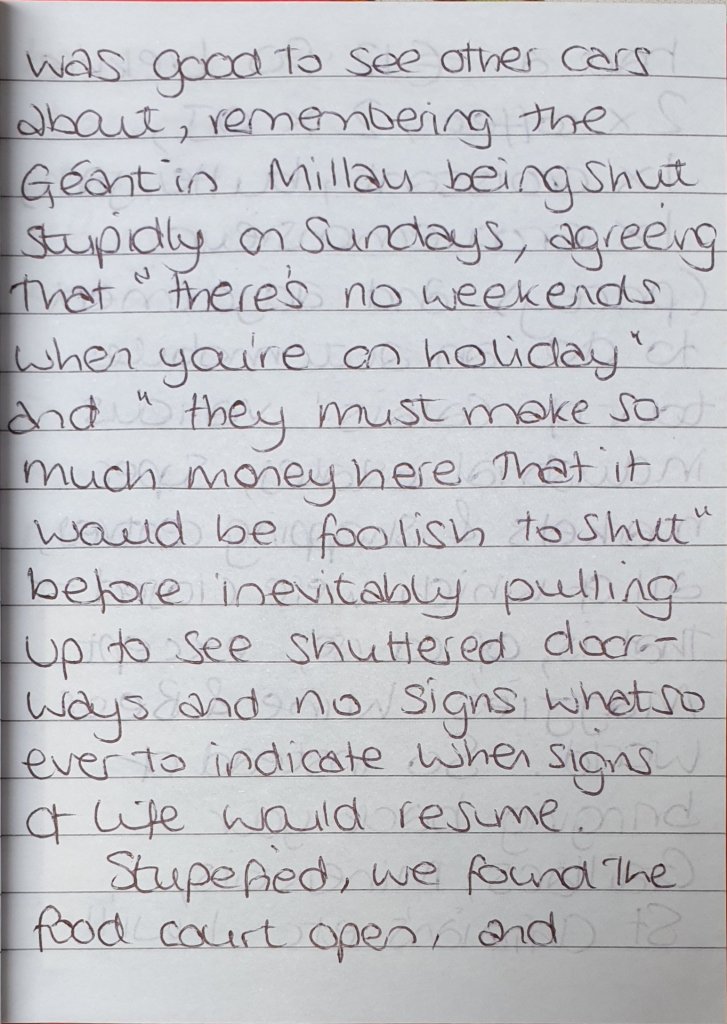 was good to see other cars
about, remembering the
Géant in Millau being shut
stupidly on Sundays, agreeing
that "there's no weekends
when you're on holiday"
and "they must make so
much money here that it
would be foolish to shut"
before inevitably pulling
up to see shuttered door-
ways and no signs whatso
ever to indicate when signs
of life would resume.
Stupefied, we found the
food court open, and